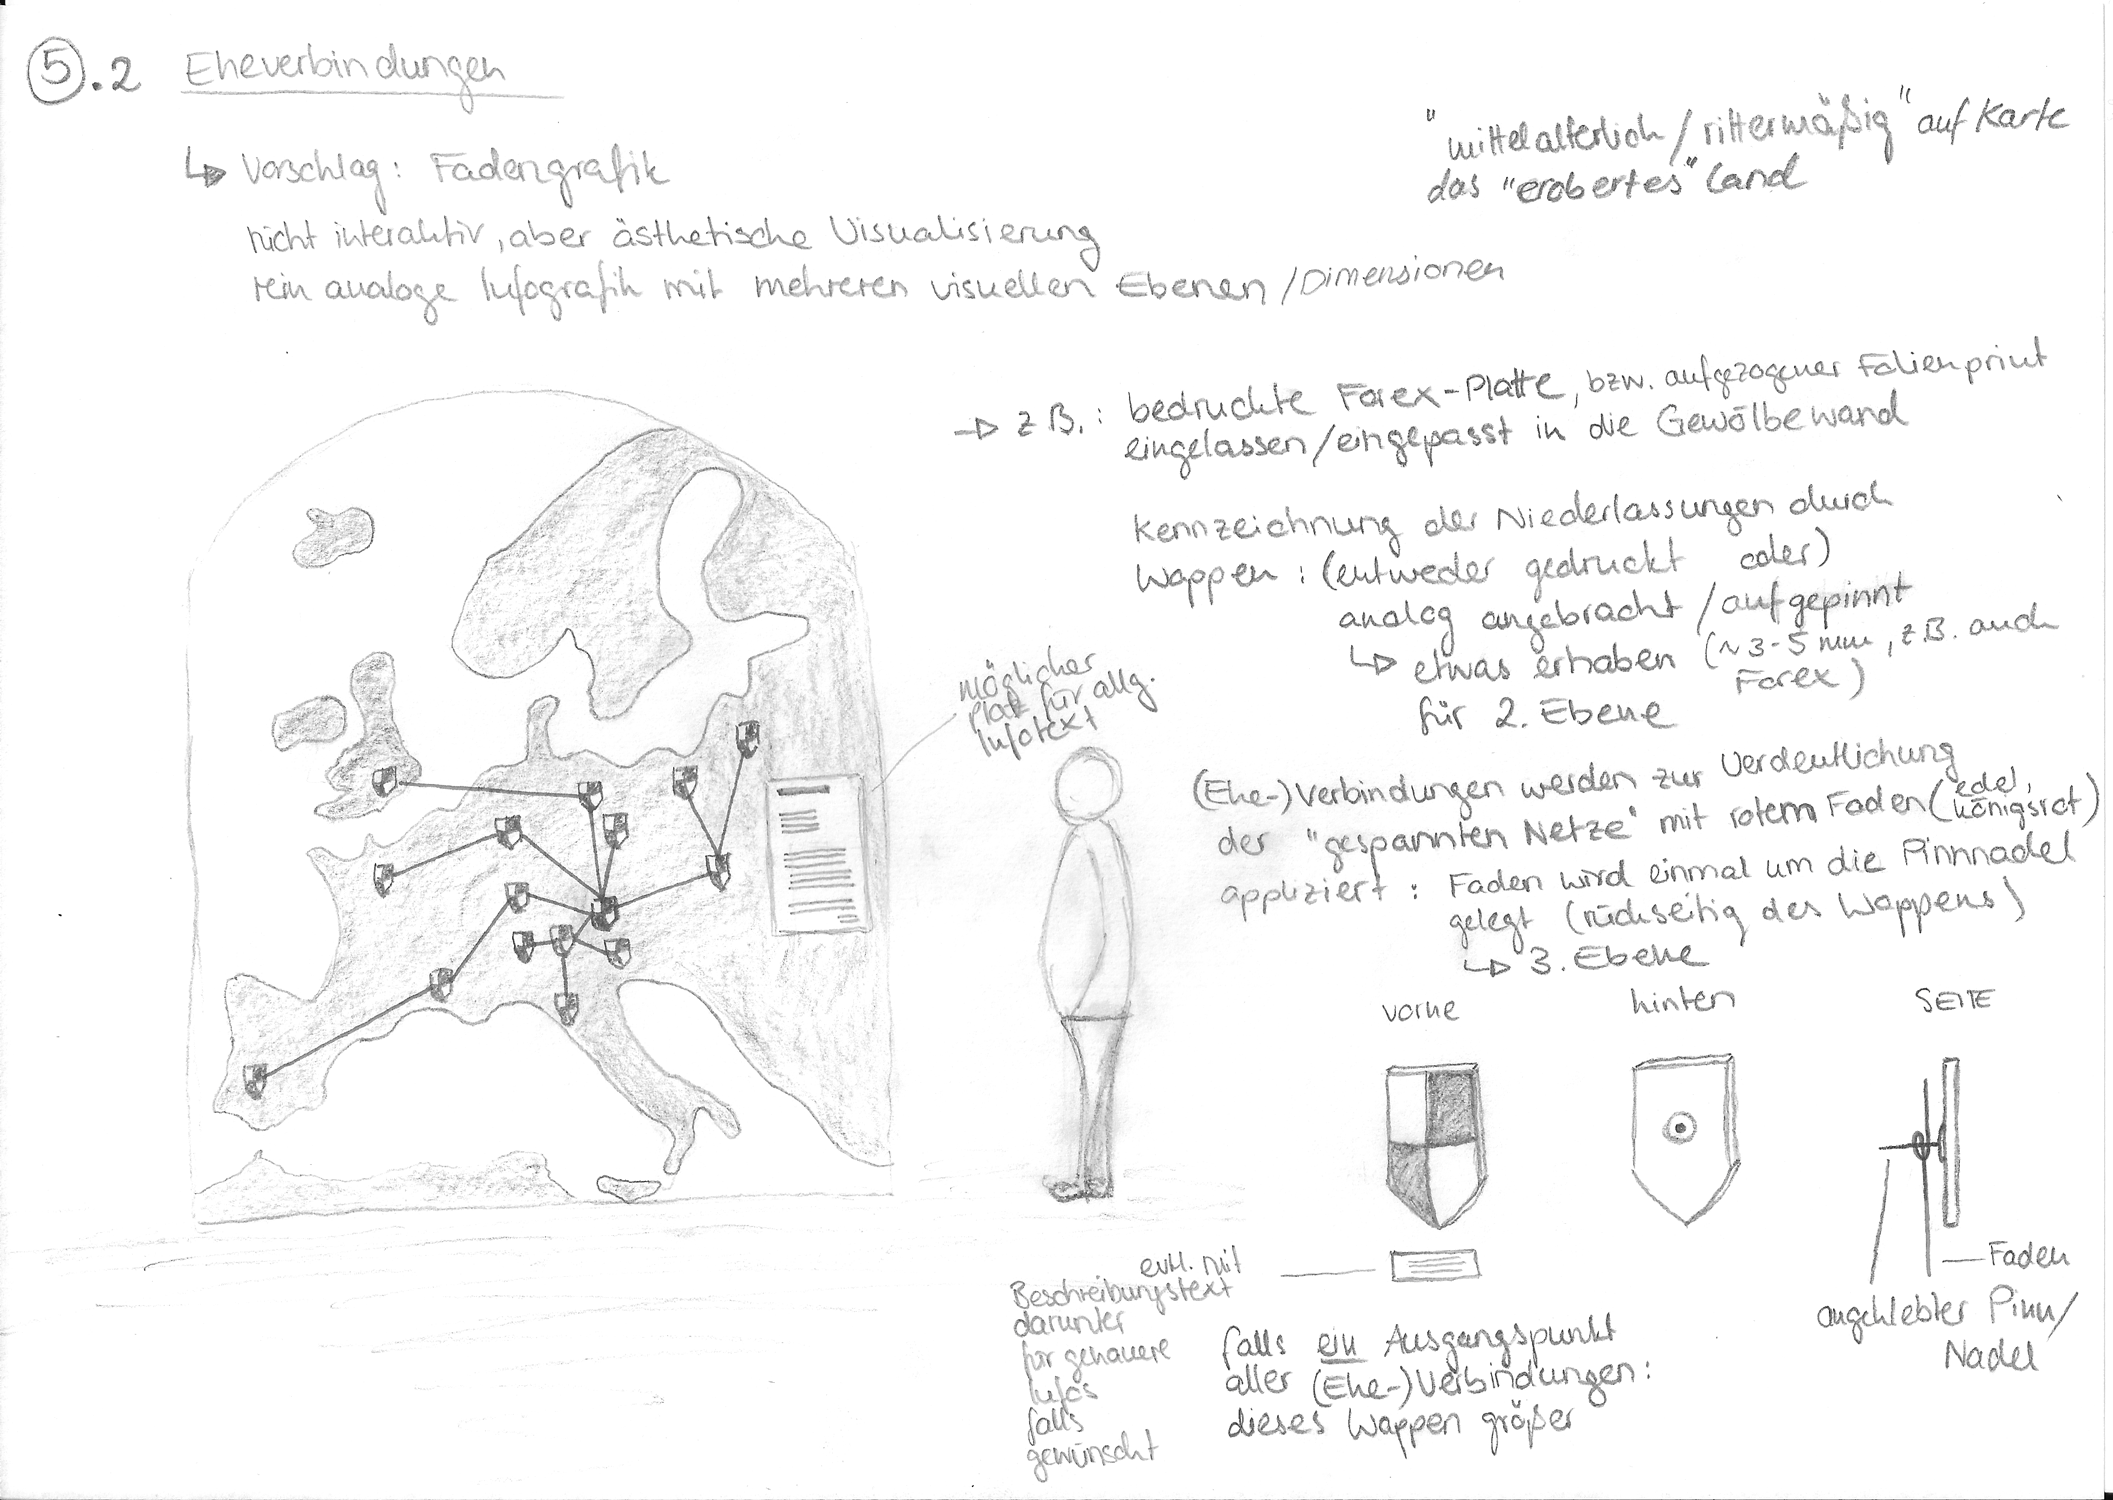 5.2 Eheverbindungen
Vorschlag: Fadengrafik
nicht interaktiv, aber ästhetische Visualisierung
rein analoge Infografik mit mehreren visuellen Ebenen /Dimensionen
"mittelalterlich/rittermäßig" auf Karte
das "erobertes" Land
z.B.: bedruckte Forex-Platte, bzw. aufgezogener Folienprint
eingelassen/eingepasst in die Gewölbewand
Kennzeichnung der Niederlassungen durch
Wappen: (entweder gedruckt oder)
analog angebracht/aufgepinnt
etwas erhaben (~3-5 mm, z.B. auch
Forex)
für 2. Ebene
möglicher
Platz für allg.
Infotext
(Ehe-)Verbindungen werden zur Verdeutlichung
der "gespannten Netze" mit rotem Faden (edel,
königsrot)
appliziert: Faden wird einmal um die Pinnnadel
gelegt (rückseitig des Wappens)
3. Ebene
vorne
hinten
SEITE
evtl. mit
Beschreibungstext
darunter
für genauere
Infos
falls
gewünscht
Faden
angeklebter Pinn/
Nadel
falls ein Ausgangspunkt
aller (Ehe-)Verbindungen:
dieses Wappen größer